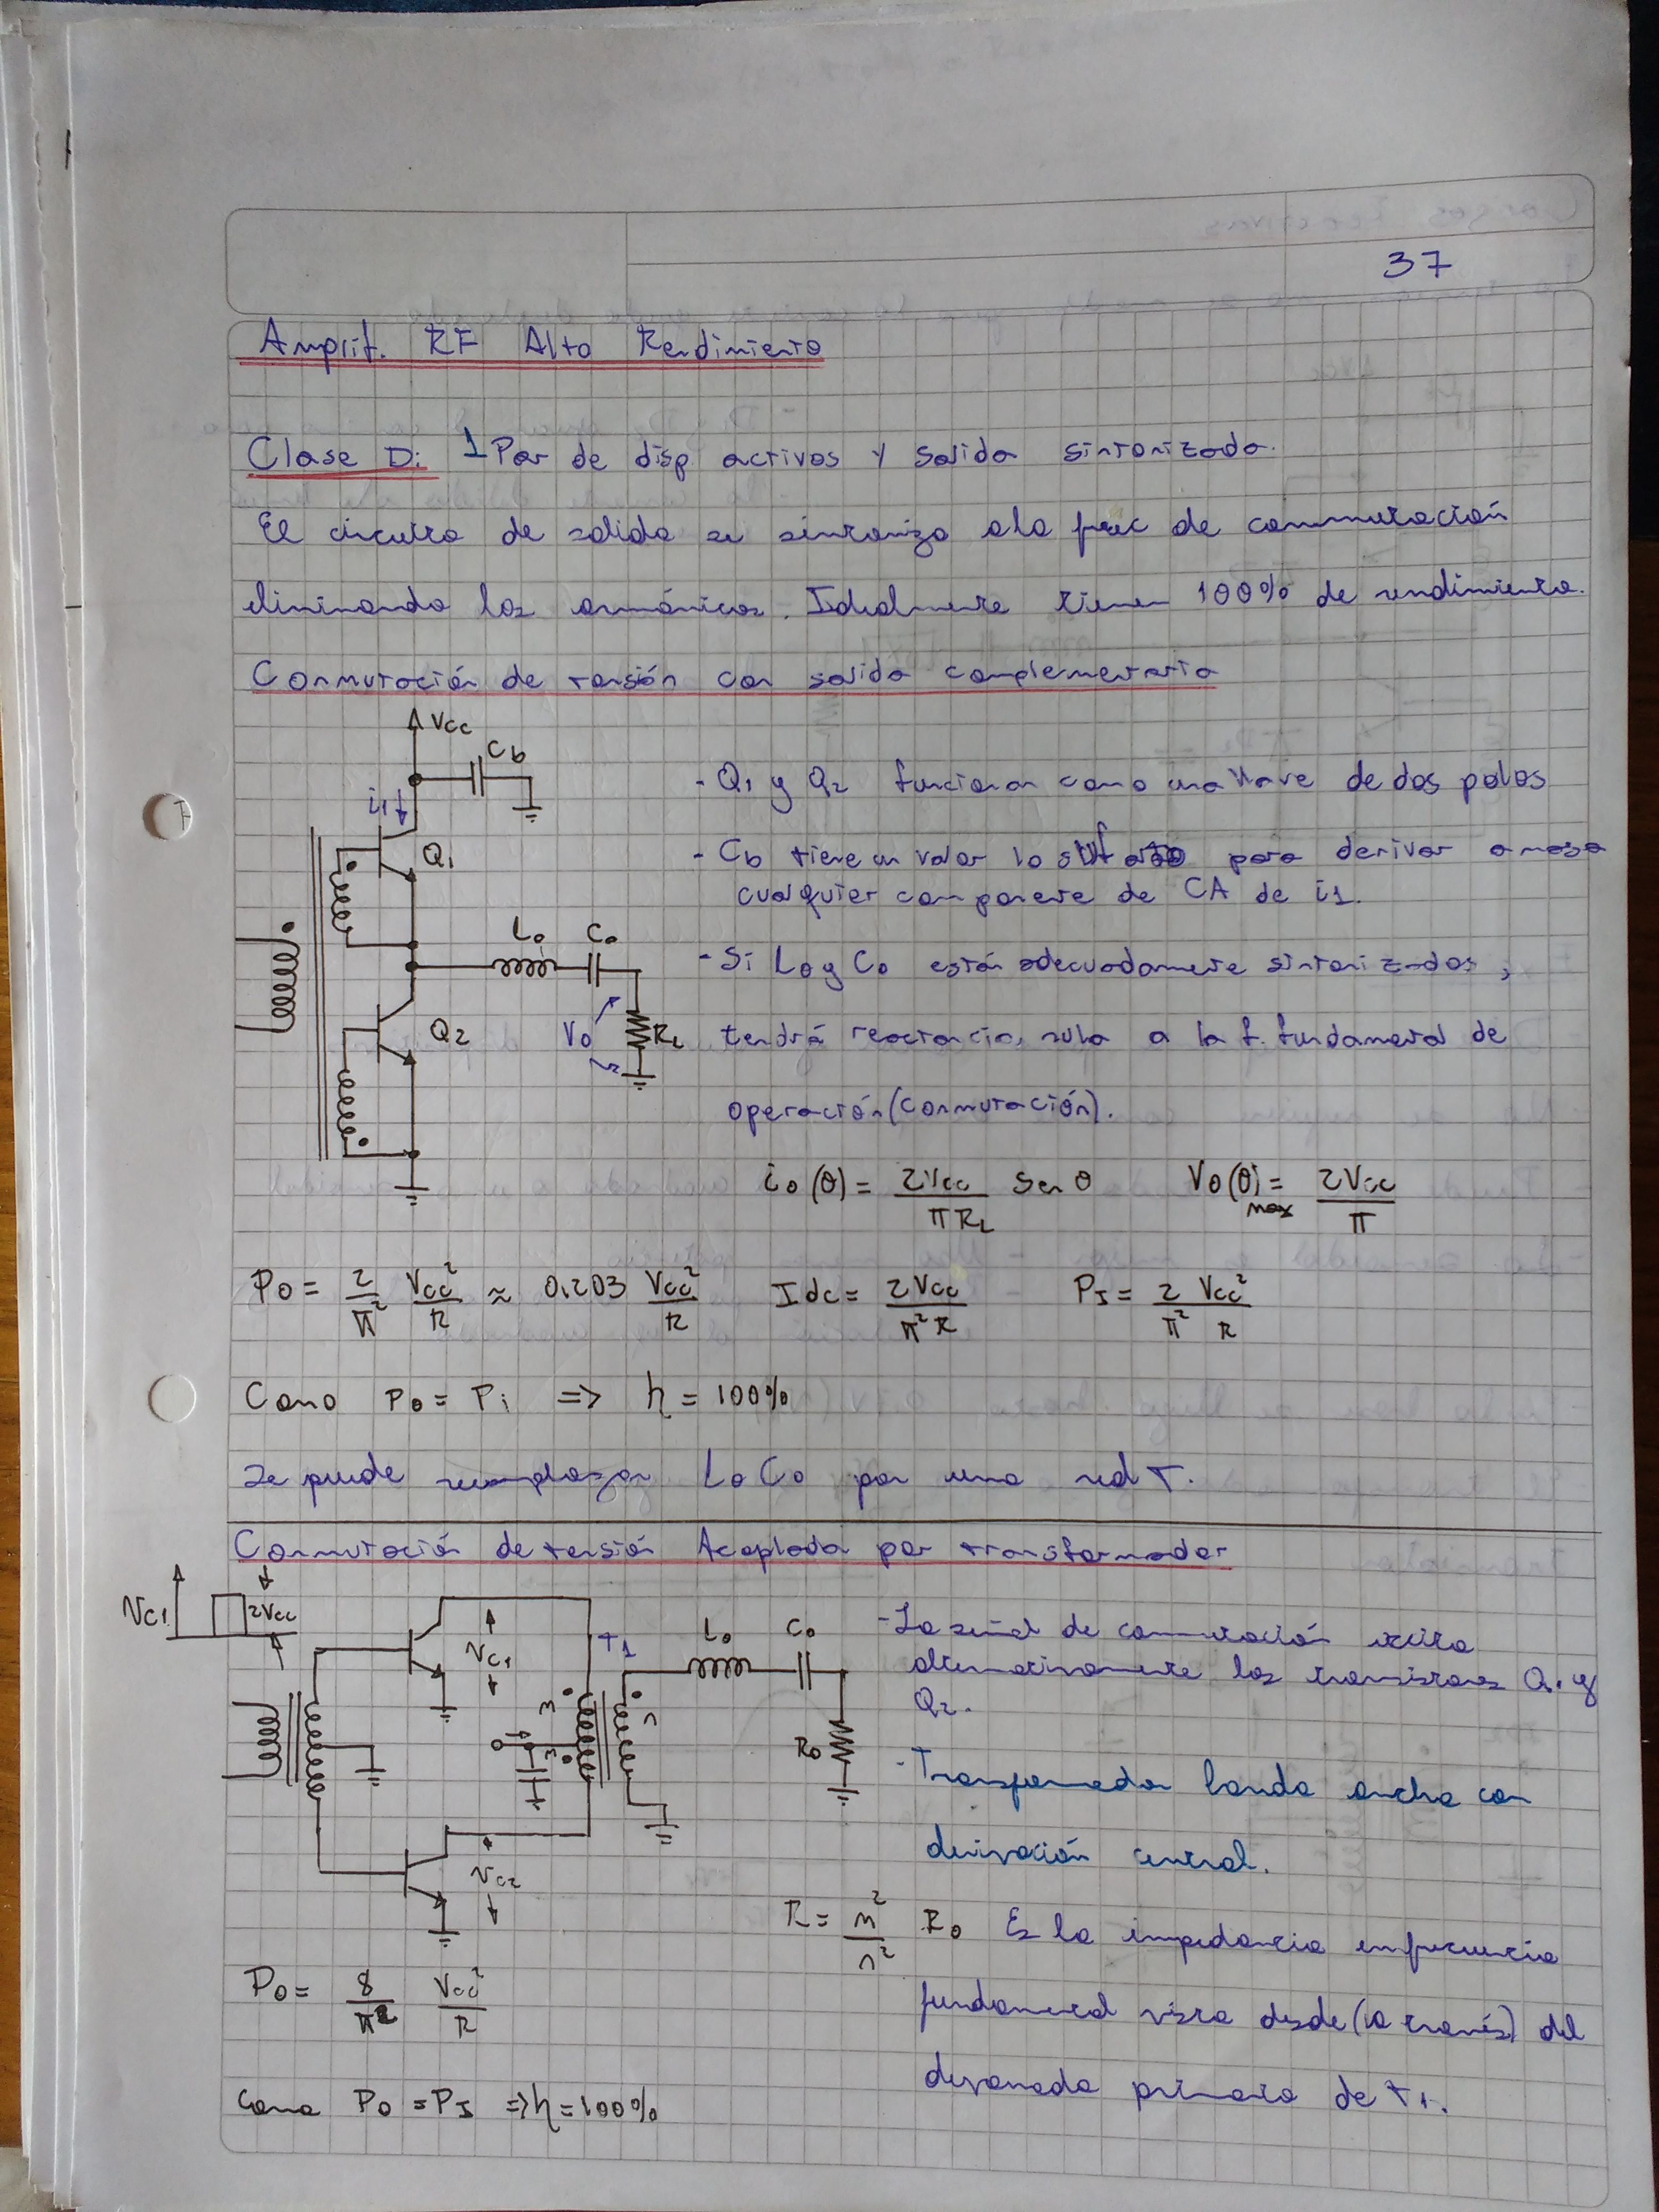 37
Amplif. RF Alto Rendimiento
Clase D: 1 Par de disp activos y salida sintonizada.
El circuito de salida se sintoniza a la frec de conmutación
eliminando los armónicos. Idealmente tienen 100% de rendimiento.
Conmutación de tensión con salida complementaria
Vcc
Cb
i1
Q1
Lo Co
Q2
Vo
RL
- Q1 y Q2 funcionan como una llave de dos polos
- Cb tiene un valor lo suf alto para derivar a masa
cualquier componente de CA de i1.
- Si Lo y Co están adecuadamente sintonizados,
tendrá reactancia nula a la f. fundamental de
operación (conmutación).
io(θ) = 2Vcc/πRL Sen θ Vo(θ)max = 2Vcc/π
Po = 2/π² Vcc²/R ≈ 0.203 Vcc²/R Idc = 2Vcc/π²R PI = 2/π² Vcc²/R
Como Po = Pi => η = 100%
Se puede reemplazar Lo Co por una red T.
Conmutación de tensión Acoplada por transformador
Vc1
2Vcc
Vc1
T1
Lo Co
m
n
m
Ro
Vc2
- La señal de conmutación excita
alternativamente los transistores Q1 y
Q2.
- Transformador banda ancha con
derivación central.
R = m²/n² Ro Es la impedancia en frecuencia
fundamental vista desde (a través) del
devanado primario de T1.
Po = 8/π² Vcc²/R
Como Po = PI => η = 100%